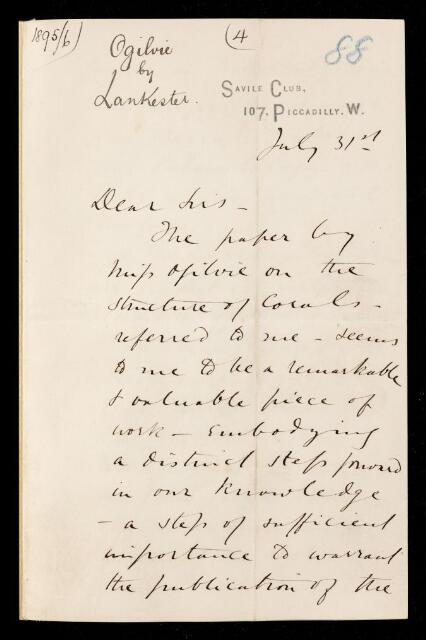 1895/6
(4
88
Ogilvie
by
Lankester.
SAVILE CLUB,
107, PICCADILLY. W.
July 31st
Dear Sirs -
The paper by
Miss Ogilvie on the
structure of Corals -
referred to me - seems
to me to be a remarkable
& valuable piece of
work - embodying
a distinct step forward
in our knowledge
- a step of sufficient
importance to warrant
the publication of the